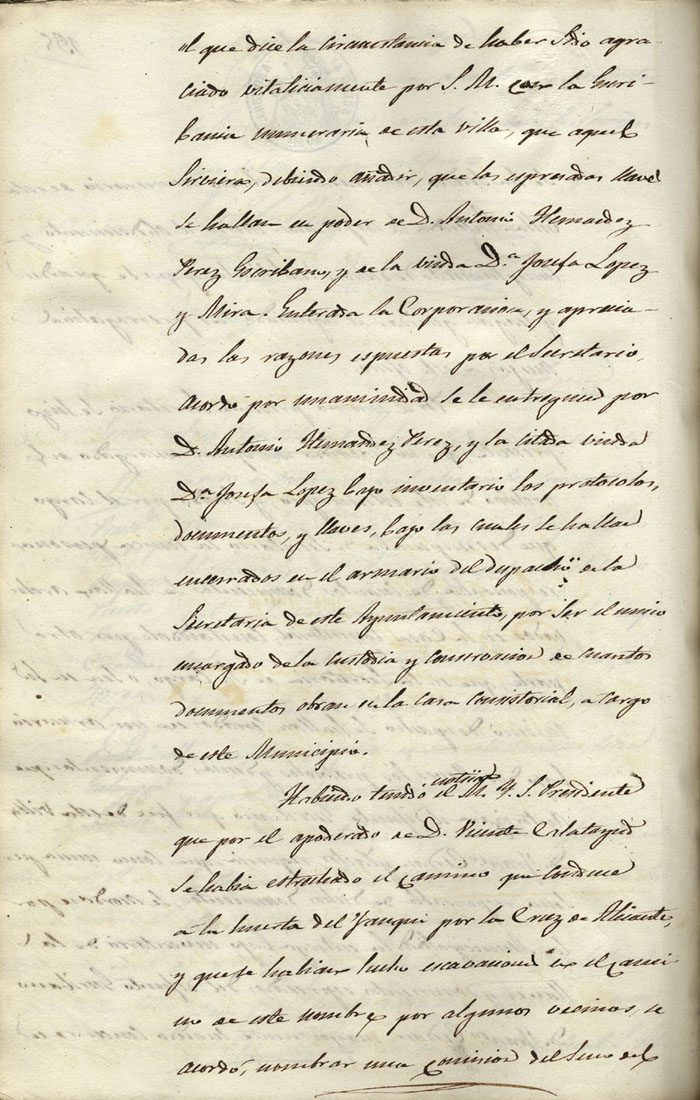 el que dice la circunstancia de haber sido agra-
ciado vitaliciamente por S. M. con la Escri-
bania numeraria de esta villa, que aquel
sirviera, debiendo añadir, que las espresadas llaves
se hallan en poder de D. Antonio Hernandez
Perez Escribano, y de la viuda D.ª Josefa Lopez
y Mira. Enterada la Corporacion, y aprecia-
das las razones espuestas por el Secretario,
acordó por unanimidad se le entreguen por
D. Antonio Hernandez Perez, y la citada viuda
D.ª Josefa Lopez bajo inventario los protocolos,
documentos, y llaves, bajo las cuales se hallan
encerrados en el armario del despacho de la
Secretaria de este Ayuntamiento, por ser el unico
encargado de la custodia y conservacion de cuantos
documentos obran en la casa consistorial, a cargo
de este Municipio.
Habiendo tenido noticia el M. Y. S. Presidente
que por el apoderado de D. Vicente Calatayud
se habia estrechado el camino que conduce
a la huerta del por la Cruz de Alicante,
y que se habian hecho escavaciones en el cami-
no de este nombre por algunos vecinos, se
acordó, nombrar una comision del seno del